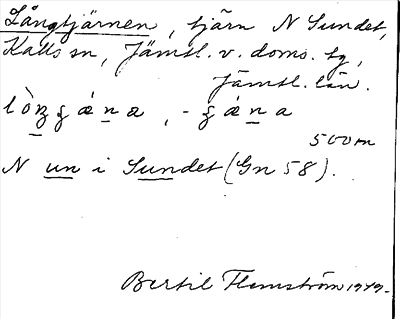 Långtjärnen, tjärn N Sundet,
Kalls sn, Jämtl. v. doms. tg,
Jämtl. län.
500 m
N un i Sundet (Gn 58).
Bertil Flemström 1979.